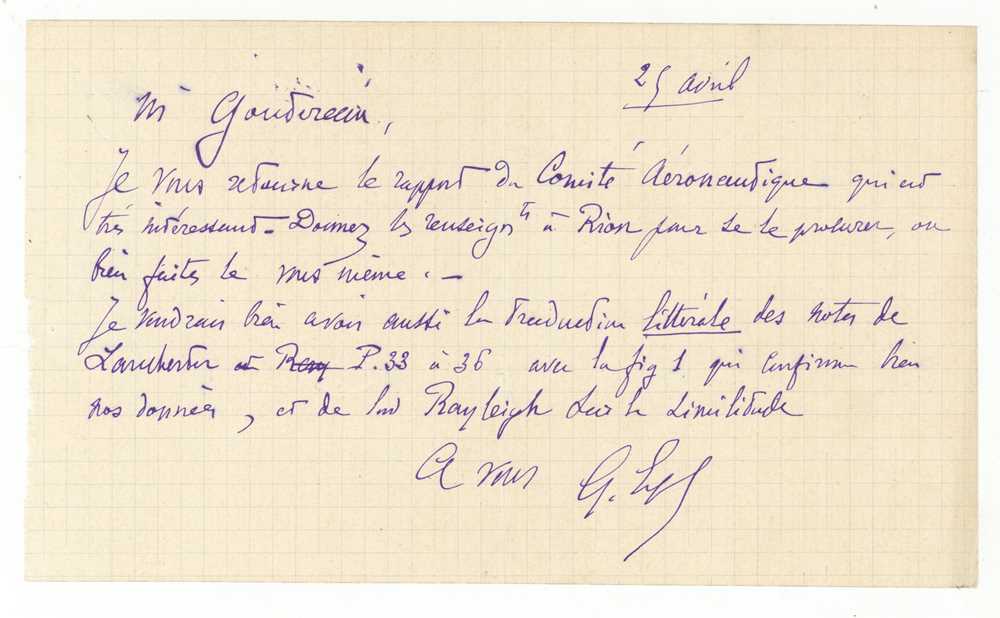 25 avril
Mr
Je vous retourne le rapport du Comité Aéronautique qui est
très intéressant - Donnez les renseigts à Rion pour se le procurer, ou
bien faites le vous même. -
Je voudrais bien avoir aussi la traduction littérale des notes de
Lanchester et P. 33 à 36 avec la fig 1 qui confirme bien
nos données, et de lord Rayleigh sur la similitude
A vous G.